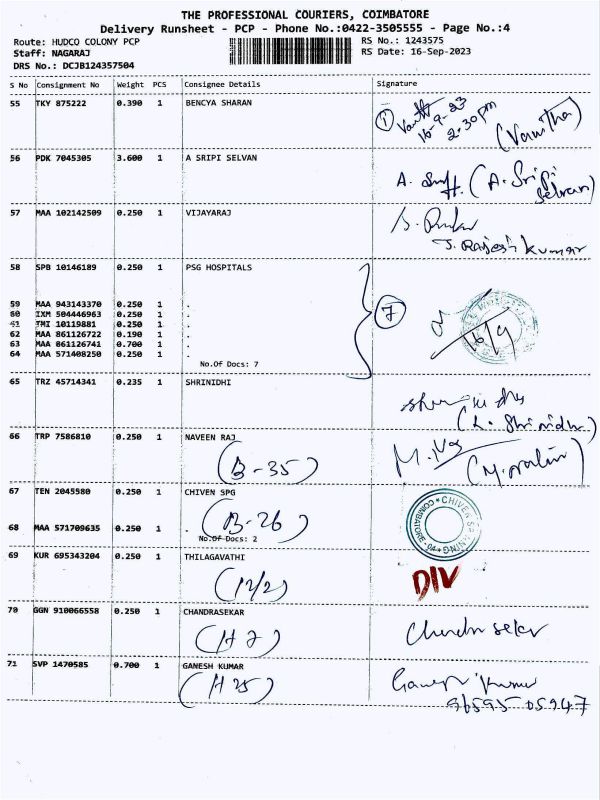 THE PROFESSIONAL COURIERS, COIMBATORE
Delivery Runsheet - PCP - Phone No.:0422-3505555 - Page No.:4
Route: HUDCO COLONY PCP RS No.: 1243575
Staff: NAGARAJ RS Date: 16-Sep-2023
DRS No.: DCJB124357504
S No Consignment No Weight PCS Consignee Details Signature
55 TKY 875222 0.390 1 BENCYA SHARAN
① 16-9-23
2.30pm
(Vanitha)
56 PDK 7045305 3.600 1 A SRIPI SELVAN
A. (A. Sripi
Selvan)
57 MAA 102142509 0.250 1 VIJAYARAJ
J. Rajesh kumar
58 SPB 10146189 0.250 1 PSG HOSPITALS
59 MAA 943143370 0.250 1 .
60 IXM 504446963 0.250 1 .
61 TMI 10119881 0.250 1 .
62 MAA 861126722 0.190 1 .
63 MAA 861126741 0.700 1 .
64 MAA 571408250 0.250 1 .
No.Of Docs: 7
7
16/9
65 TRZ 45714341 0.235 1 SHRINIDHI
66 TRP 7586810 0.250 1 NAVEEN RAJ
(B-35)
67 TEN 2045580 0.250 1 CHIVEN SPG
(B-26)
68 MAA 571709635 0.250 1 .
No.Of Docs: 2
CHIVEN
COIMBATORE-04
69 KUR 695343204 0.250 1 THILAGAVATHI
(12/2)
DIV
70 GGN 910066558 0.250 1 CHANDRASEKAR
(H 7) Chandra sekar
71 SVP 1470585 0.700 1 GANESH KUMAR
(H 25) Ganesh Kumar
96595 05947